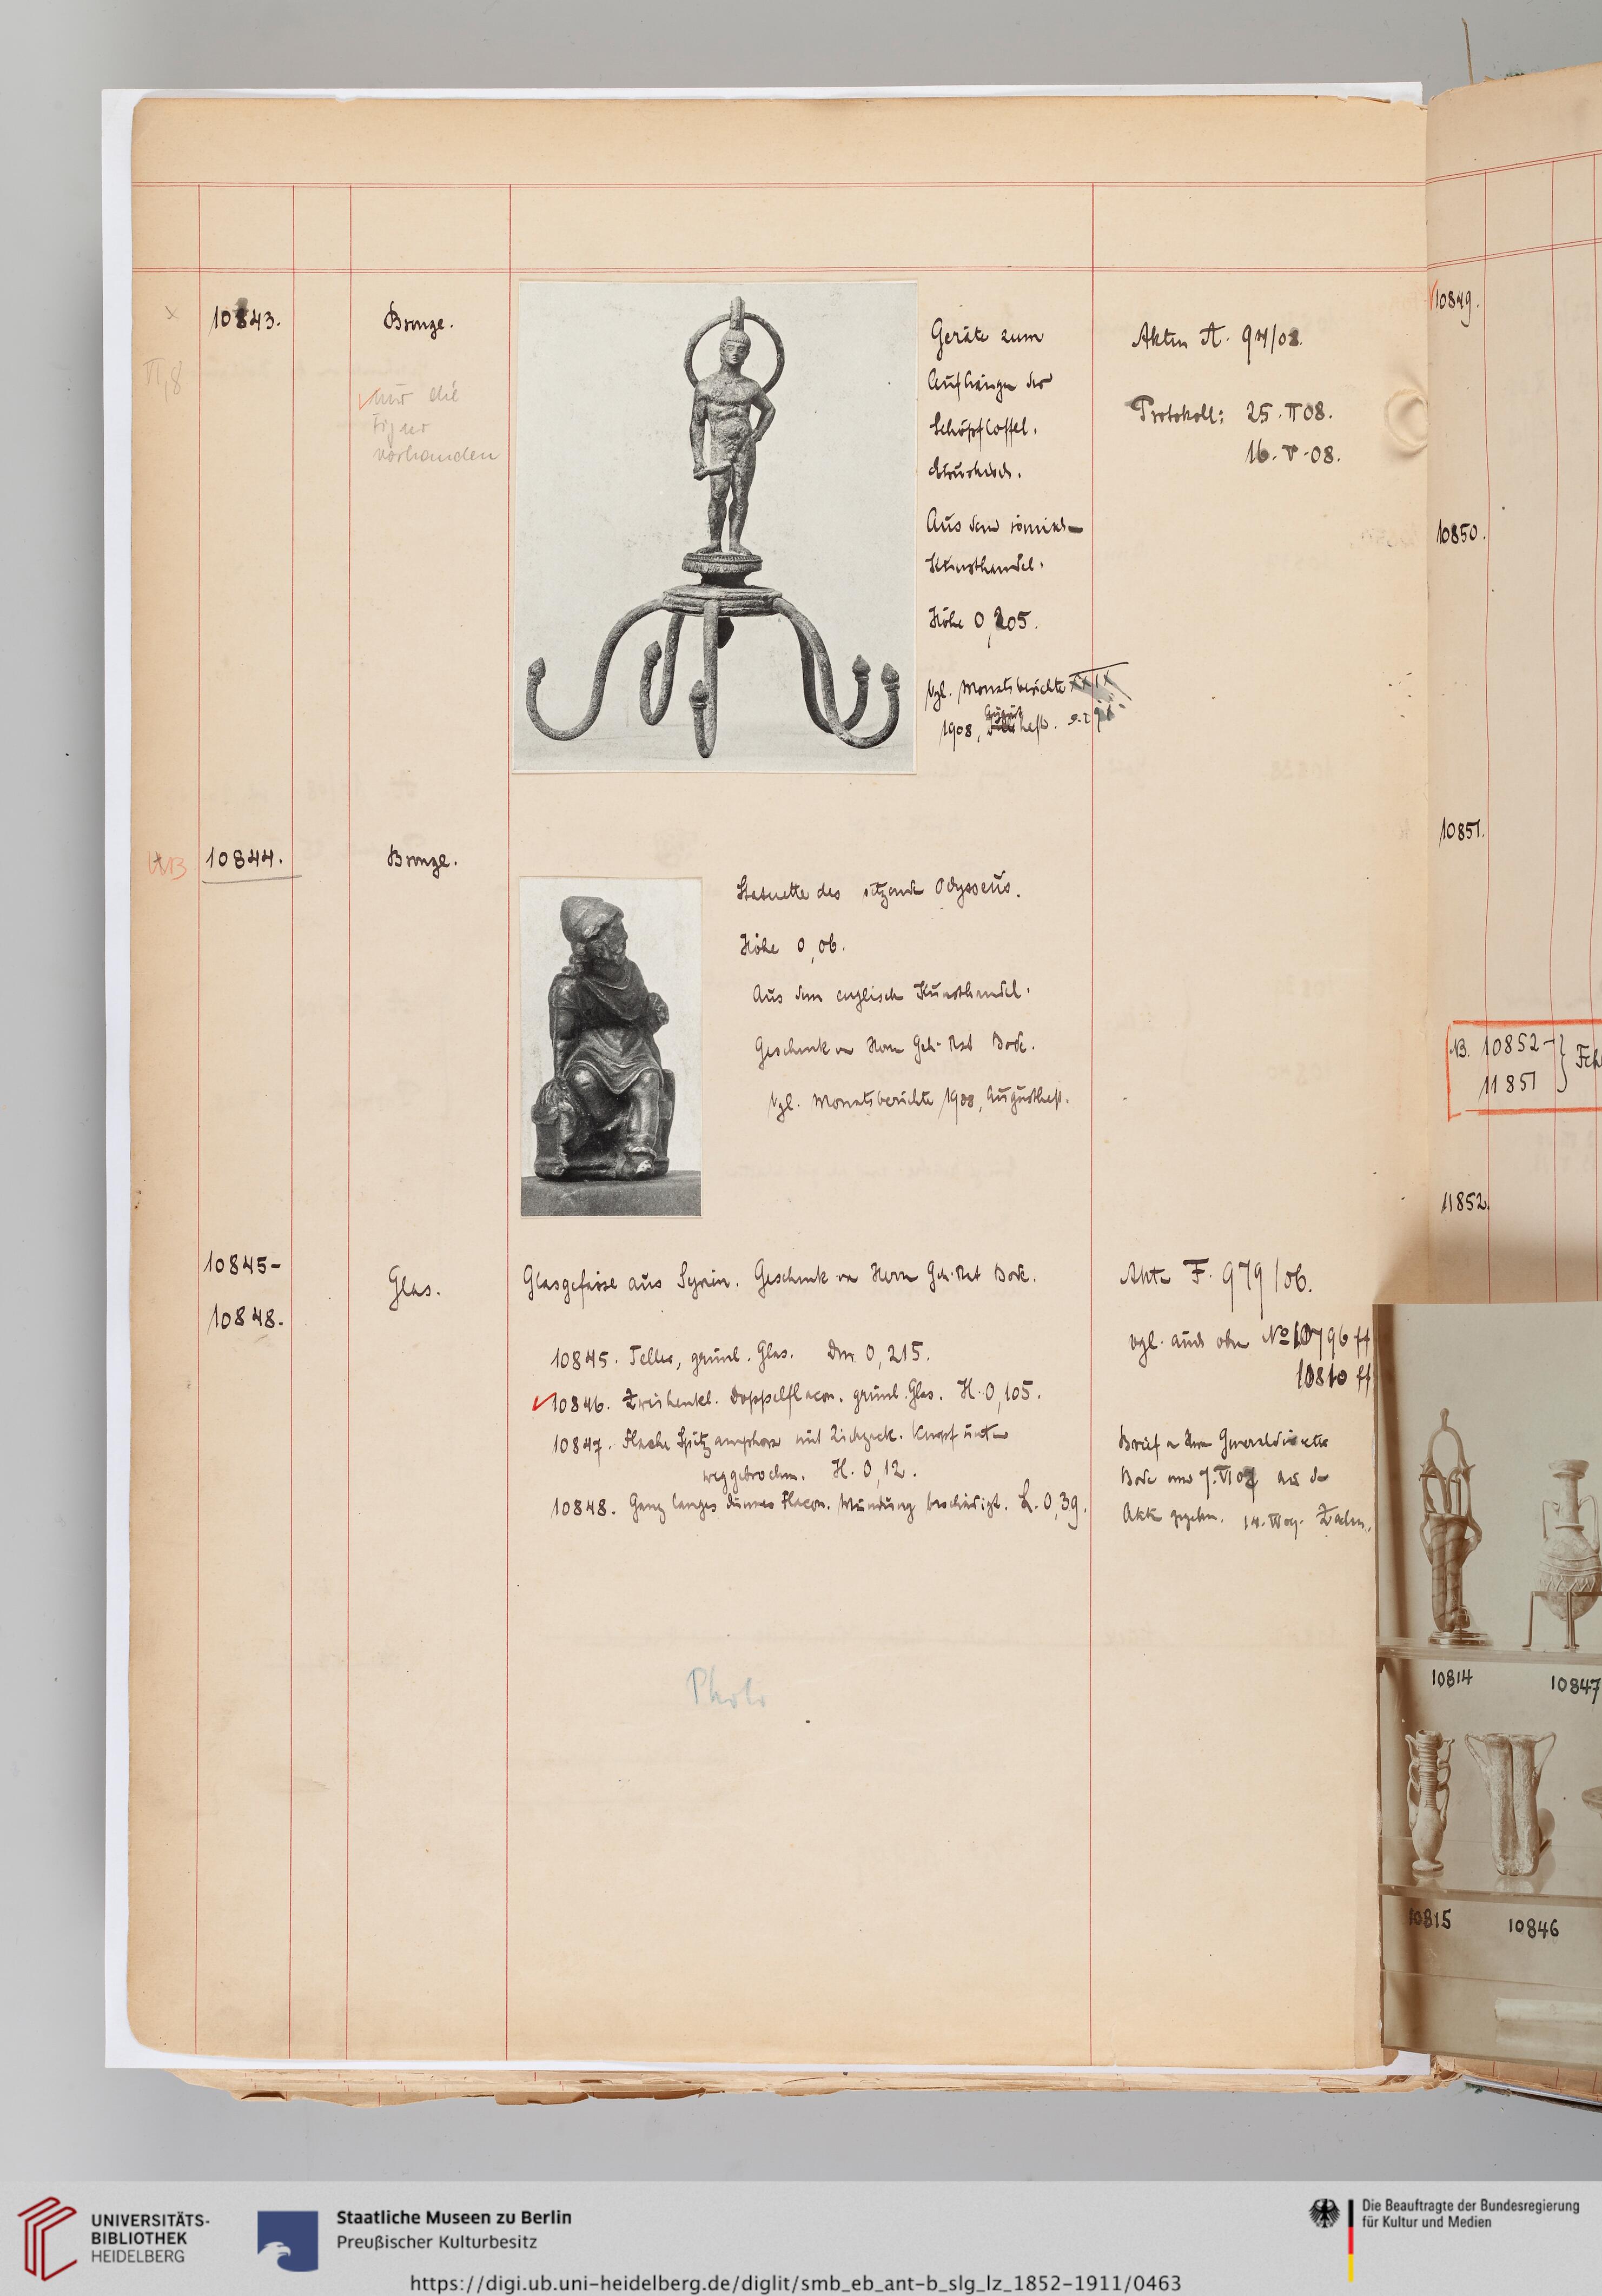 10843.
Bronze.
nur die
Figur
vorhanden
Geräte zum
Aufhängen der
Schöpflöffel.
Etruskisch.
Aus dem römisch
Kunsthandel.
Höhe 0,205.
Vgl. Monatsberichte XXIX
1908, Augustheft. S. 2
Akten A. 94/08.
Protokoll: 25. II 08.
16. V. 08.
10844.
Bronze.
Statuette des sitzende Odysseus.
Höhe 0,06.
Aus dem englisch Kunsthandel.
Geschenk von Herrn Geh. Rat Bode.
Vgl. Monatsberichte 1908, Augustheft.
10845-
10848.
Glas.
Glasgefässe aus Syrien. Geschenk von Herrn Geh. Rat Bode.
10845. Teller, grünl. Glas. Dm. 0,215.
10846. Zweihenkl. Doppelflacon. grünl. Glas. H. 0,105.
10847. Flache Spitzamphora mit Zickzack. Knopf unten
weggebrochen. H. 0,12.
10848. Ganz langes dünnes Flacon. Mündung beschädigt. L. 0,39.
Akte F. 979/06.
vgl. auch oben No 10796 ff
10810 ff
Brief an Herrn Generaldirektor
Bode vom 7. VI 07 zu den
Akten gegeben. 14. Zahn.
Photo
10849.
10850.
10851.
NB. 10852-
11851
11852.
10814
10847
10815
10846
UNIVERSITÄTS-
BIBLIOTHEK
HEIDELBERG
Staatliche Museen zu Berlin
Preußischer Kulturbesitz
Die Beauftragte der Bundesregierung
für Kultur und Medien
https://digi.ub.uni-heidelberg.de/diglit/smb_eb_ant-b_slg_lz_1852-1911/0463